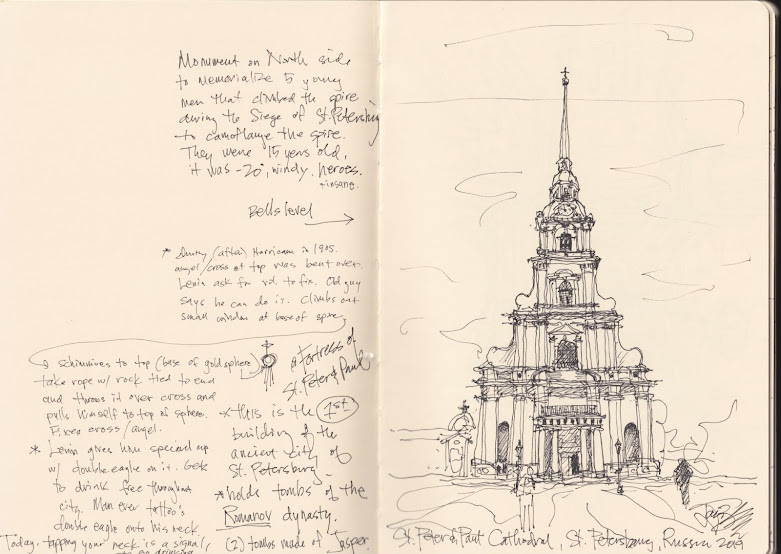 Monument on North side
to memorialize 5 young
men that climbed the spire
during the Siege of St. Petersburg
to camoflauge the spire.
They were 15 years old,
it was -20°, windy. heroes.
+ insane.
Bells level
* (after) Hurricane in 1905.
angel/cross at top was bent over.
Lenin ask for vol. to fix. Old guy
says he can do it. Climbs out
small window at base of spire,
schimmies to top (base of gold sphere)
take rope w/ rock tied to end
and throws it over cross and
pulls himself to top of sphere.
Fixes cross/angel.
* Lenin gives him special cup
w/ double eagle on it. Gets
to drink free throughout
city. Man even tattoo's
double eagle onto his neck
Today. tapping your neck is a signal,
to go drinking
* Fortress of
St. Peter & Paul
* This is the 1st
building of the
ancient city of
St. Petersburg
* holds tombs of the
Romanov dynasty.
(2) tombs made of Jasper
St. Peter & Paul Cathedral, St. Petersburg, Russia 2019